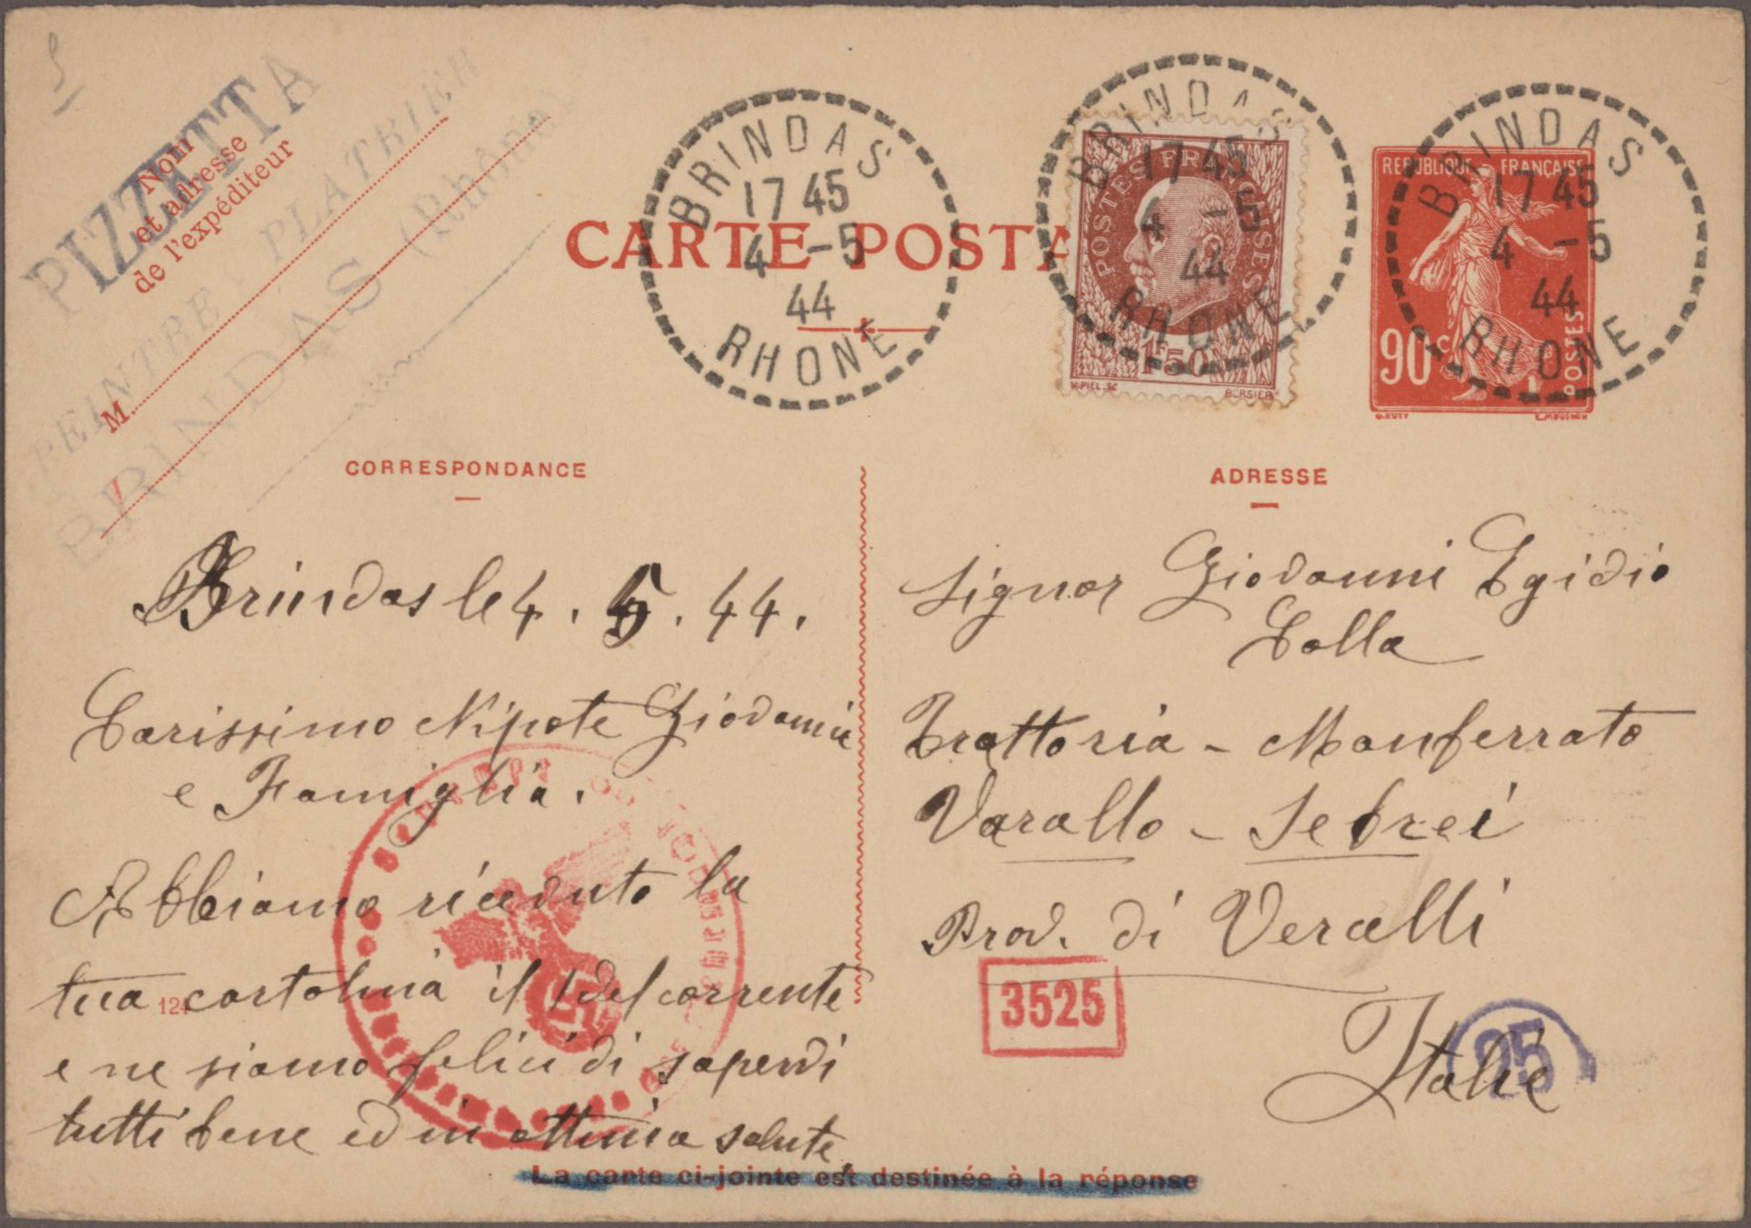 PIZZETTA
PEINTRE - PLATRIER
BRINDAS (Rhône)
Nom
et adresse
de l'expéditeur
M
CARTE POSTA
BRINDAS
17 45
4 -5
44
RHONE
BRINDAS
17 45
4 -5
44
RHONE
POSTES FRANÇAISES
1F50
PIEL. SC
BERSIER
BRINDAS
17 45
4 -5
44
RHONE
REPUBLIQUE FRANÇAISE
90 c
POSTES
O. ROTY
E. MOUCHON
CORRESPONDANCE
ADRESSE
Brindas le 4. 5. 44.
Carissimo Nipote Giovanni
e Famiglia.
Abbiamo ricevuto la
tua cartolina il 1 del corrente
124
e ne siamo felici di sapervi
tutti bene ed in ottima salute
Signor Giovanni Egidio
Colla
Trattoria - Monferrato
Varallo - Sesia
Prov. di Vercelli
Italie
3525
95
La carte ci-jointe est destinée à la réponse